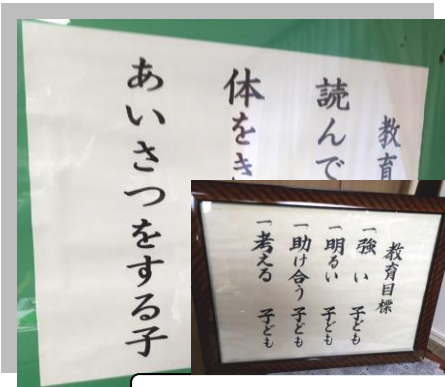 教育
読んで
体をき
あいさつをする子
教育目標
一強い 子ども
一明るい 子ども
一助け合う 子ども
一考える 子ども